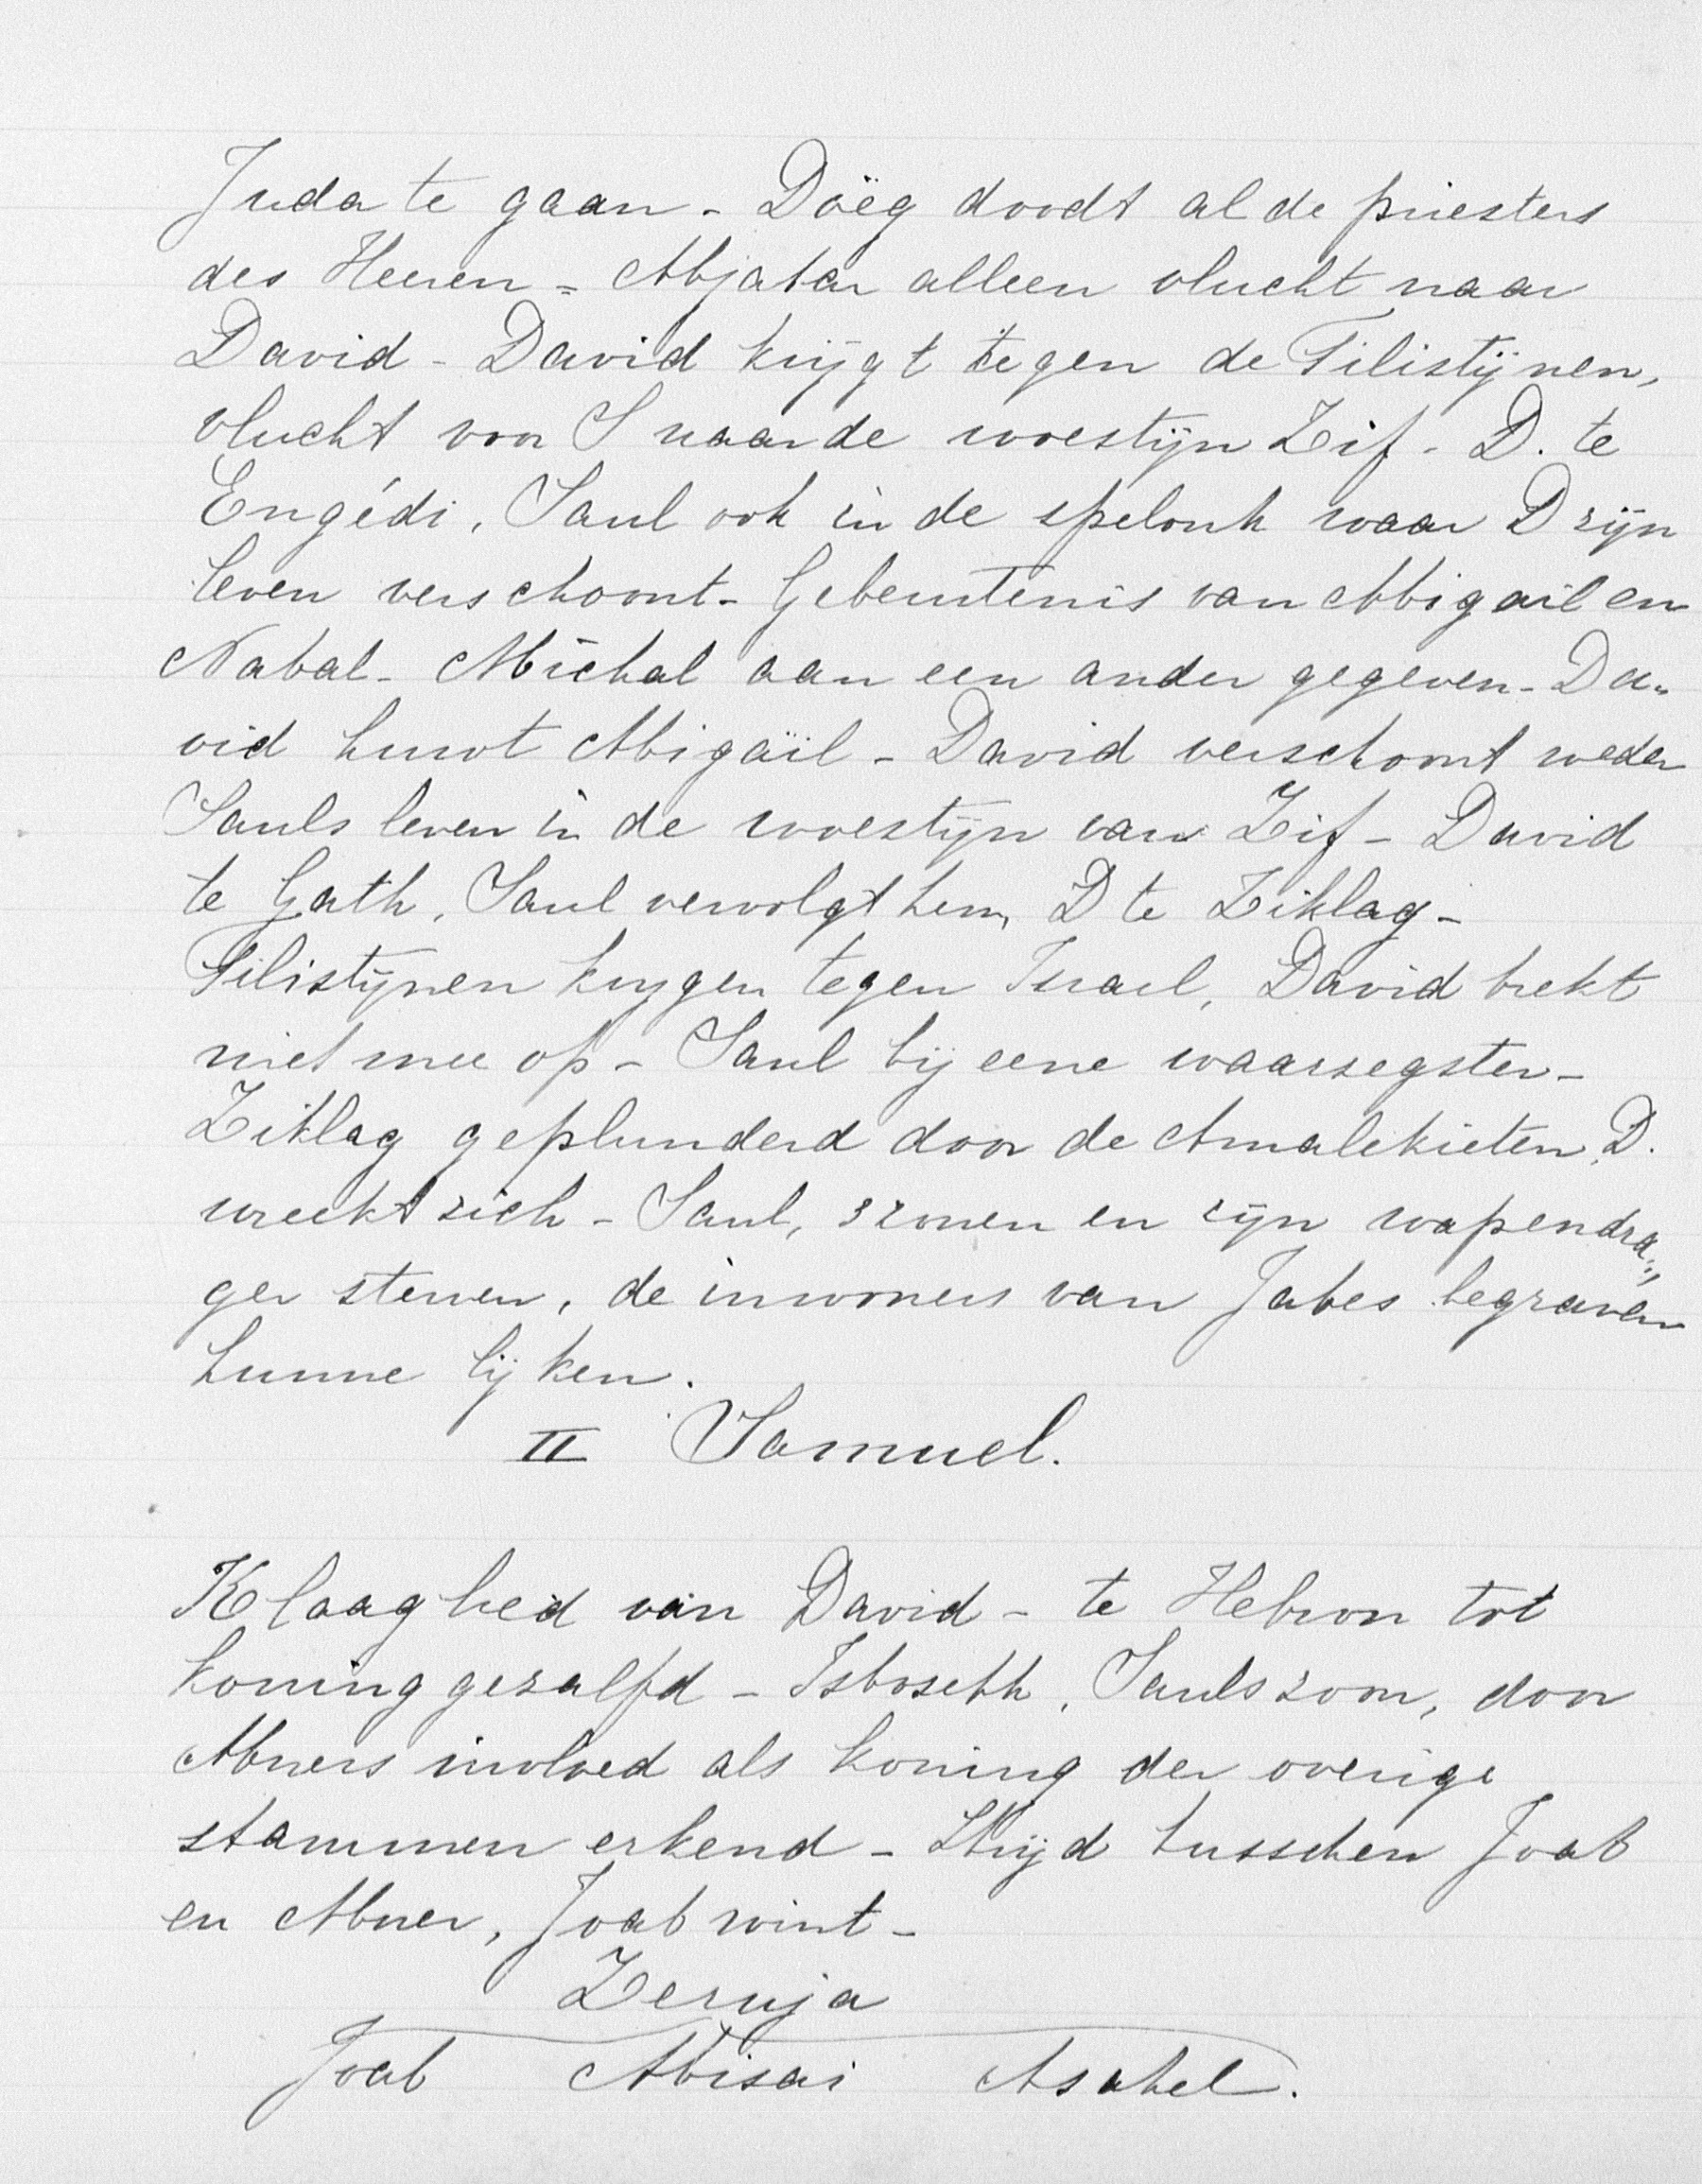 Juda te gaan - Döeg doodt al de priesters
des Heeren = Abjatar alleen vlucht naar
David - David krijgt tegen de Filistijnen,
vlucht voor S naar de woestijn Zif - D. te
Engédi, Saul ook in de spelonk waar D zijn
leven verschoont - Gebeurtenis van Abigail en
Nabal - Michal aan een ander gegeven - Da„
vid huwt Abigaïl - David verschoont weder
Sauls leven in de woestijn van Zif - David
te Gath, Saul vervolgt hem, D te Ziklag -
Filistijnen krijgen tegen Israel, David trekt
niet mee op - Saul bij eene waarzegster -
Ziklag geplunderd door de Amalekieten, D.
wreekt zich - Saul, 3 zonen en zijn wapendra„
ger sterven, de inwoners van Jabes begraven
hunne lijken.
II Samuel.
Klaaglied van David - te Hebron tot
koning gezalfd - Isboseth, Sauls zoon, door
Abners invloed als koning der overige
stammen erkend - Strijd tusschen Joab
en Abner, Joab wint -
Zeruja
Joab Abisai Asahel.